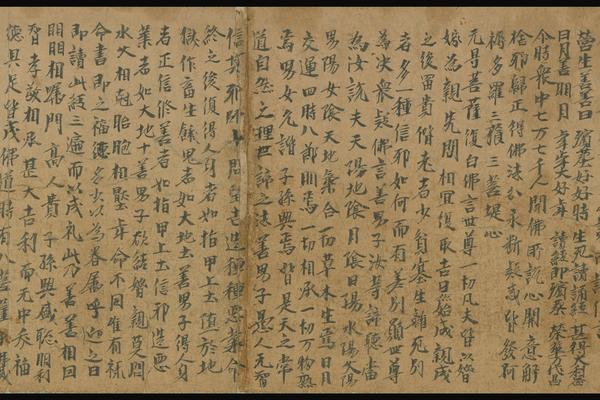 營生善善日 殯葬好好時 生死讀誦經 甚得大利益
日月善明月 年年大好年 讀經即殯葬 榮華万代昌
尒時眾中七万七千人聞佛所說心開意解
捨邪歸正得佛法分永斷疑惑皆發阿
耨多羅三藐三菩提心
无㝵菩薩復白佛言世尊一切凡夫皆以婚
嫁為親先問相宜復取吉日始成親成
之後富貴偕老者少貧窮生離死別
者多一種信邪如何而有差別願世尊
為決衆疑佛言善男子汝等諦聽當
為汝說夫天陽地陰月陰日陽水陽火陽
男陽女陰天地氣合一切草木生焉日月
交運四時八節明焉一切相承一切万物熟
焉男女允諧子孫興焉皆是天之常
道自然之理世諦之法善男子愚人无智
信其邪師卜問望吉造種種惡業命
終之後復得人身者如指甲上土墮於地
獄作畜生餓鬼者如大地土善男子得人身
者正信修善者如指甲上土信邪造惡
業者如大地土善男子欲結婚親莫問
水火相剋胎胞相壓年命不同唯有祿
命書即之福德多少以為眷属呼迎之日
即讀此經三遍而以成礼此乃善善相因
明明相属門高人貴子孫興盛聰明利
智孝敬相承甚大吉利而无中夭福
德具足皆成佛道時有八菩薩承佛威